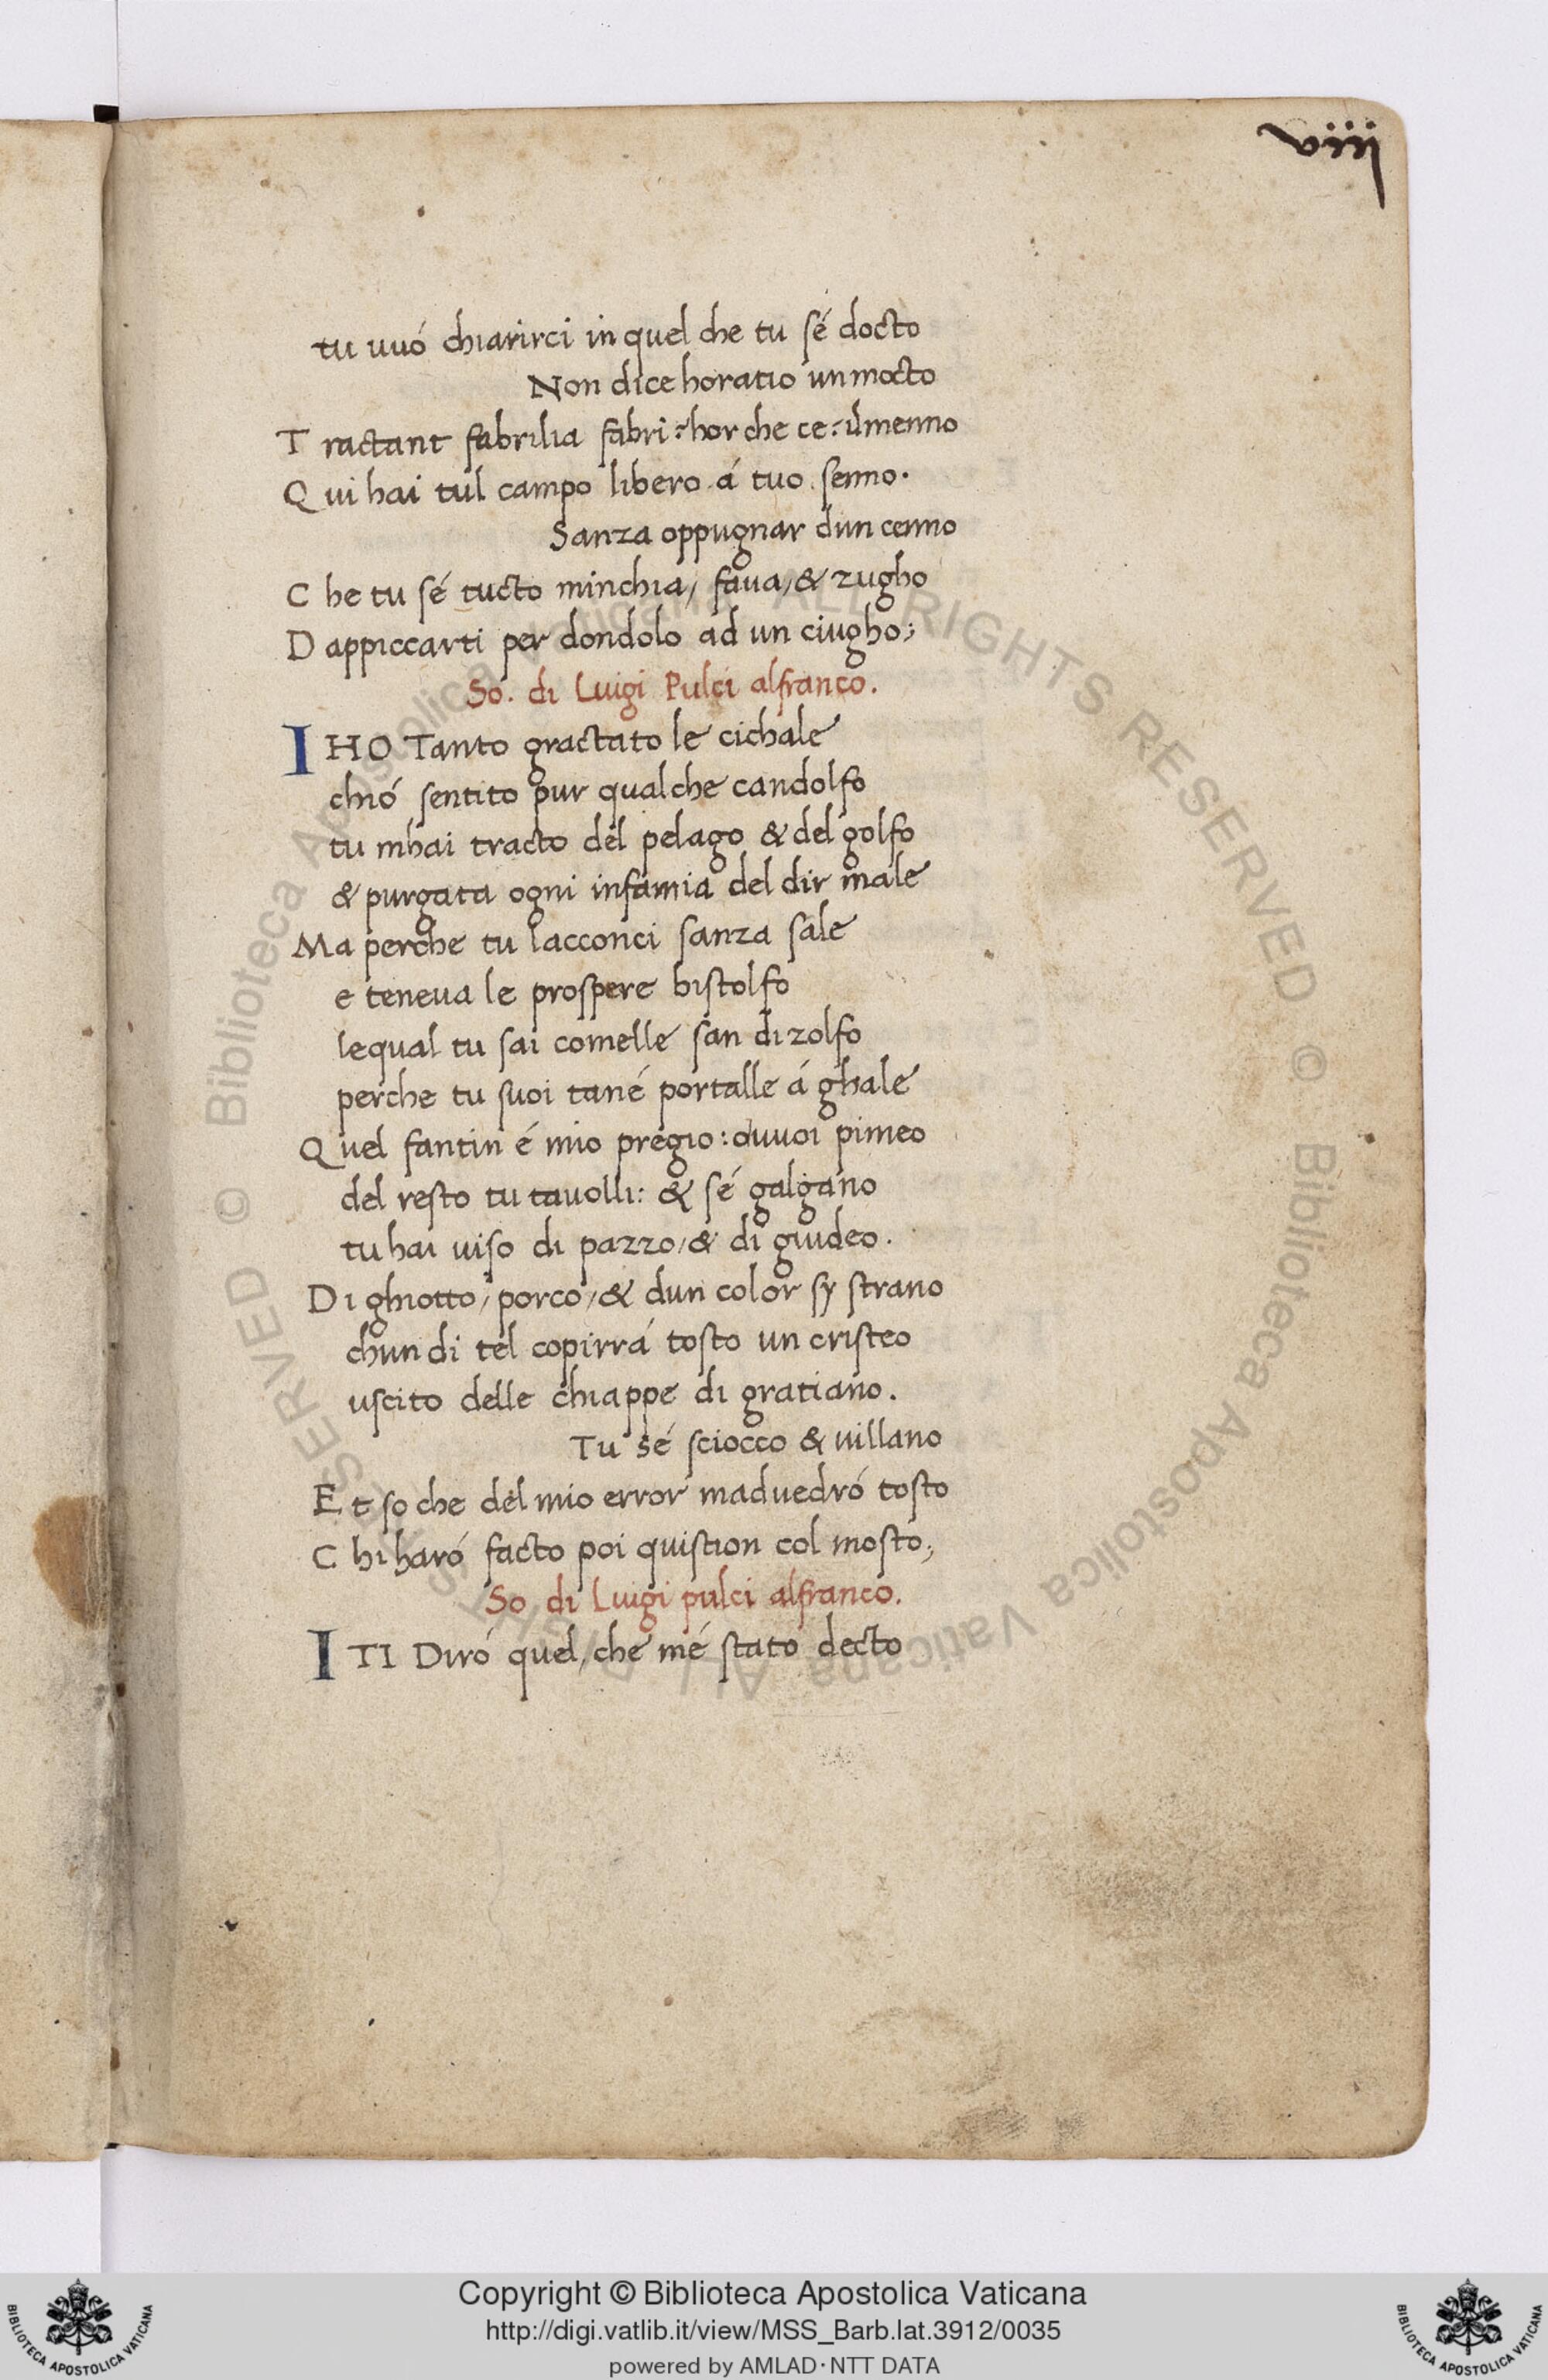 viiij
tu vuó chiarirci in quel che tu sé docto
Non dice horatio un mocto
Tractant fabrilia fabri: hor che ce: ilmenno
Qui hai tul campo libero á tuo senno.
Sanza oppugnar dun cenno
Che tu sé tucto minchia/ faua/ & zugho
Dappiccarti per dondolo ad un ciugho;
So. di Luigi Pulci alfranco.
IHO Tanto gractato le cichale
chió sentito pur qualche candolfo
tu mhai tracto del pelago & del golfo
& purgata ogni infamia del dir male
Ma perche tu lacconci sanza sale
e teneua le prospere bistolfo
lequal tu sai comelle san di zolfo
perche tu suoi tané portalle á ghale
Quel fantin é mio pregio: ouuoi pimeo
del resto tu tauolli: & sé galgano
tu hai uiso di pazzo/ & di giudeo.
Di ghiotto/ porco/ & dun color sy strano
chun di tel copirrá tosto un cristeo
uscito delle chiappe di gratiano.
Tu sé sciocco & uillano
Et so che del mio error maduedró tosto
Chi haró facto poi quistion col mosto;
So di Luigi pulci alfranco.
I TI Diró quel, che mé stato decto
Copyright © Biblioteca Apostolica Vaticana
http://digi.vatlib.it/view/MSS_Barb.lat.3912/0035
powered by AMLAD·NTT DATA
BIBLIOTECA APOSTOLICA VATICANA
BIBLIOTECA APOSTOLICA VATICANA
© Biblioteca Apostolica Vaticana ALL RIGHTS RESERVED
© Biblioteca Apostolica Vaticana ALL RIGHTS RESERVED